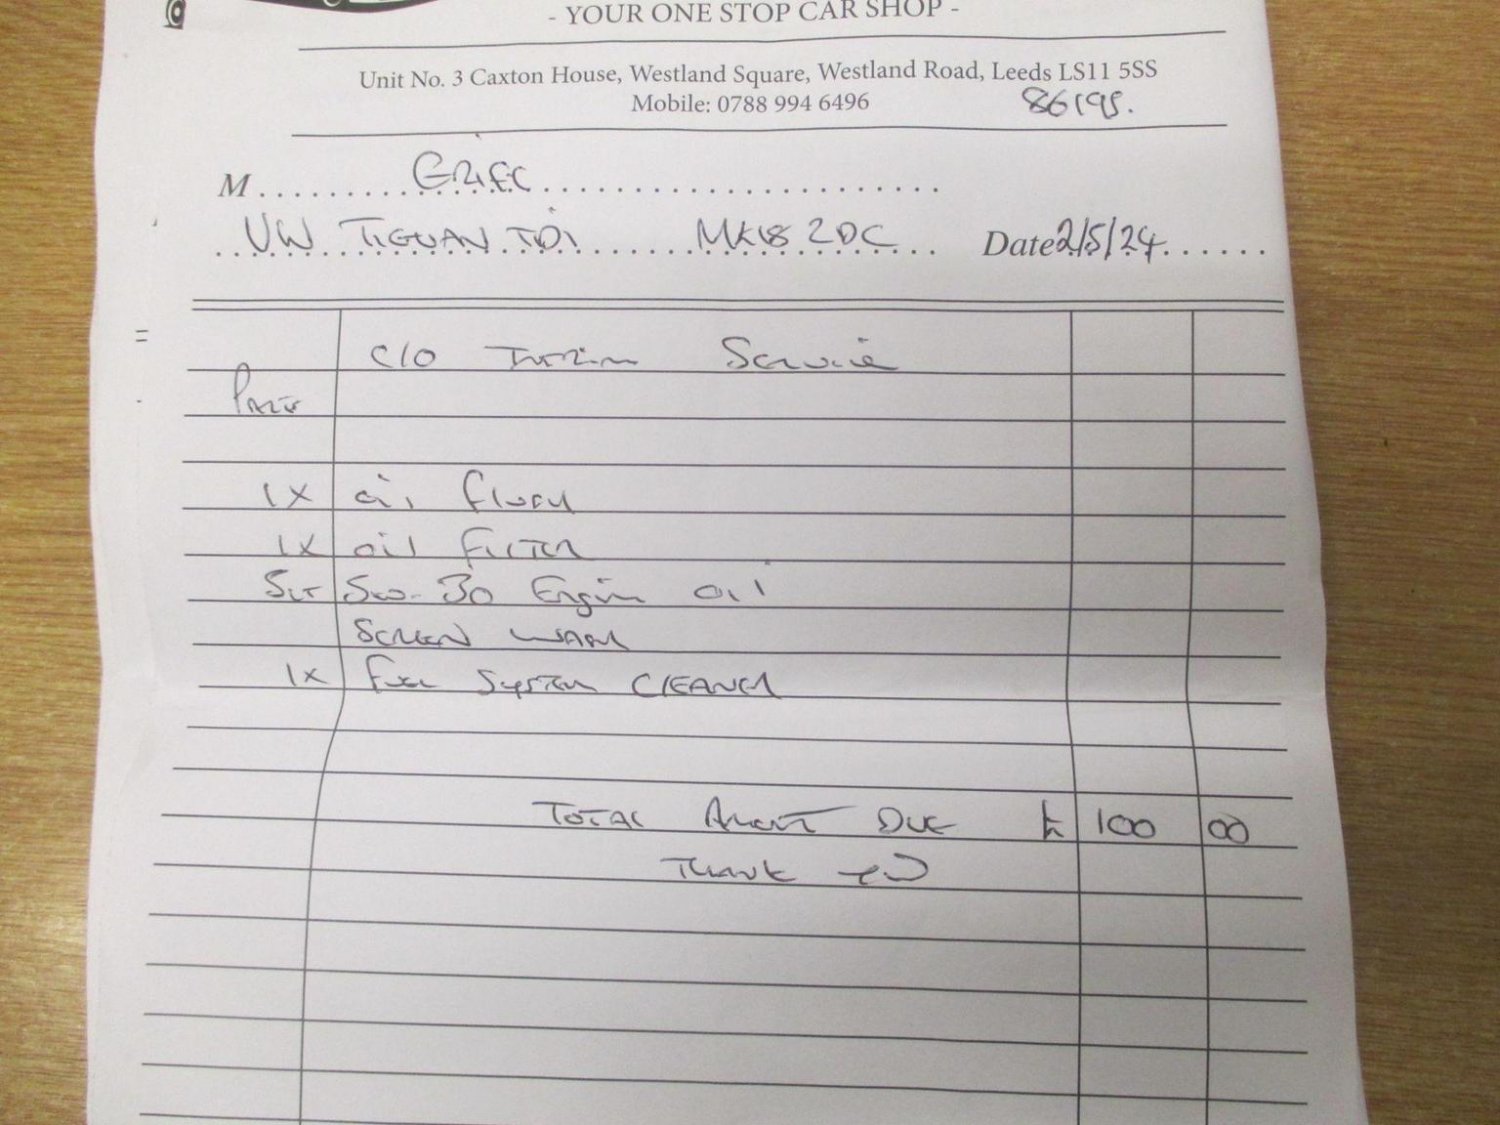 - YOUR ONE STOP CAR SHOP -
Unit No. 3 Caxton House, Westland Square, Westland Road, Leeds LS11 5SS
Mobile: 0788 994 6496
86195.
M
VW TIGUAN TDI MK18 Date 2/5/24
C/O Interim Service
Parts
1x oil flush
1x oil Filter
5LT 5w-30 Engine oil
SCREEN WASH
1x Fuel System CLEANER
TOTAL Amount DUE £ 100 00
THANK you